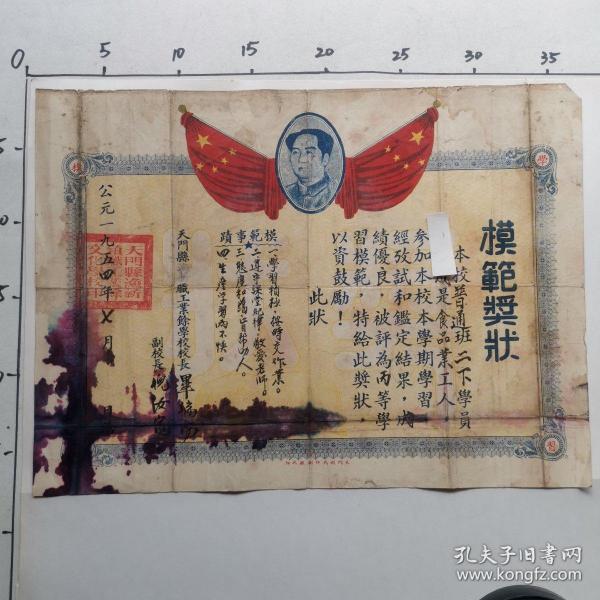 0 5 10 15 20 25 30 35
學
模
習
模範獎狀
本校普通班二下學員
是食品業工人
參加本校本學期學習
經攷試和鑑定結果，成
績優良，被評為丙等學
習模範，特給此獎狀，
以資鼓勵！
此狀
模範事蹟
一、學習積極，按時交作業。
二、遵守課堂紀律，敬愛老師。
三、態度和藹，正員幫助人。
四、生產學習兩不悮。
天門縣 職工業餘學校校長
副校長
公元一九五四年七月 日
孔夫子旧书网
www.kongfz.com